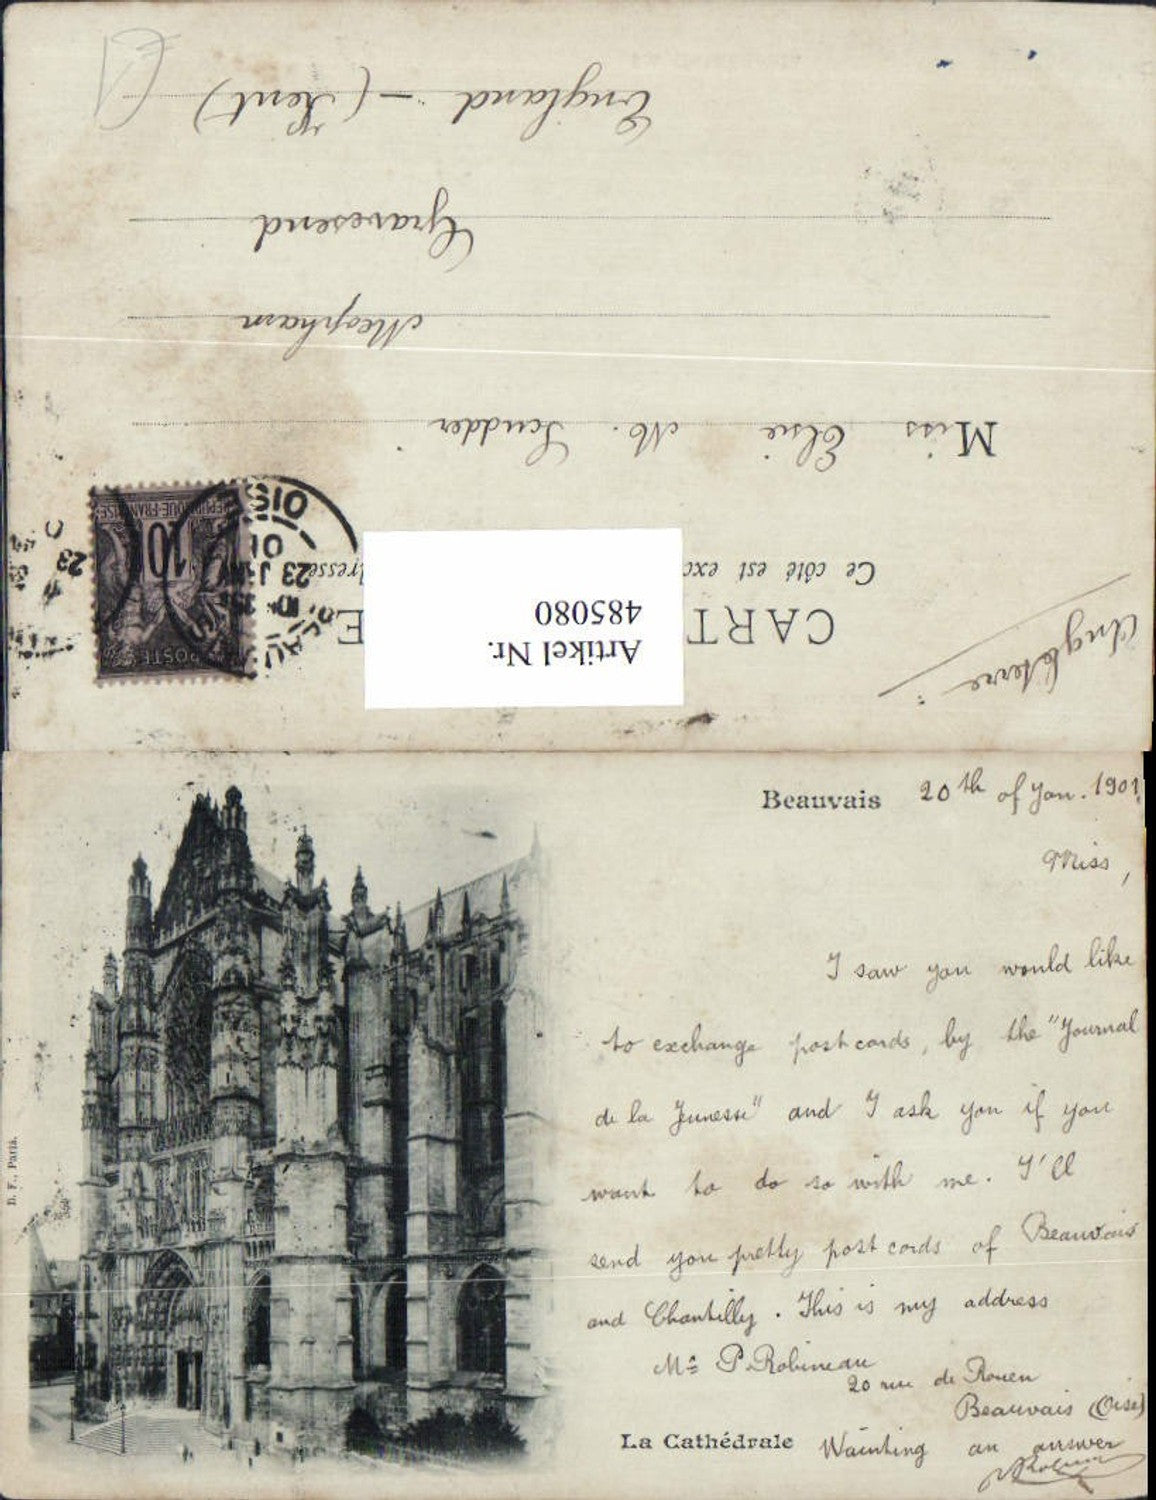 CART E
Ce côté est exc resse
Angleterre
Artikel Nr.
485080
REPUBLIQUE FRANÇAISE
10
POSTE
OISE
23
01
23
Miss Elsie M. Scudder
Meopham
Gravesend
England - (Kent)
Beauvais 20th of Jan. 1901
Miss,
I saw you would like
to exchange postcards, by the "Journal
de la Jeunesse" and I ask you if you
want to do so with me. I'll
send you pretty post cards of Beauvais
and Chantilly. This is my address
Ms P. Robineau
20 rue de Rouen
Beauvais (Oise)
Wainting an answer
P Robineau
La Cathédrale
B. F., Paris.